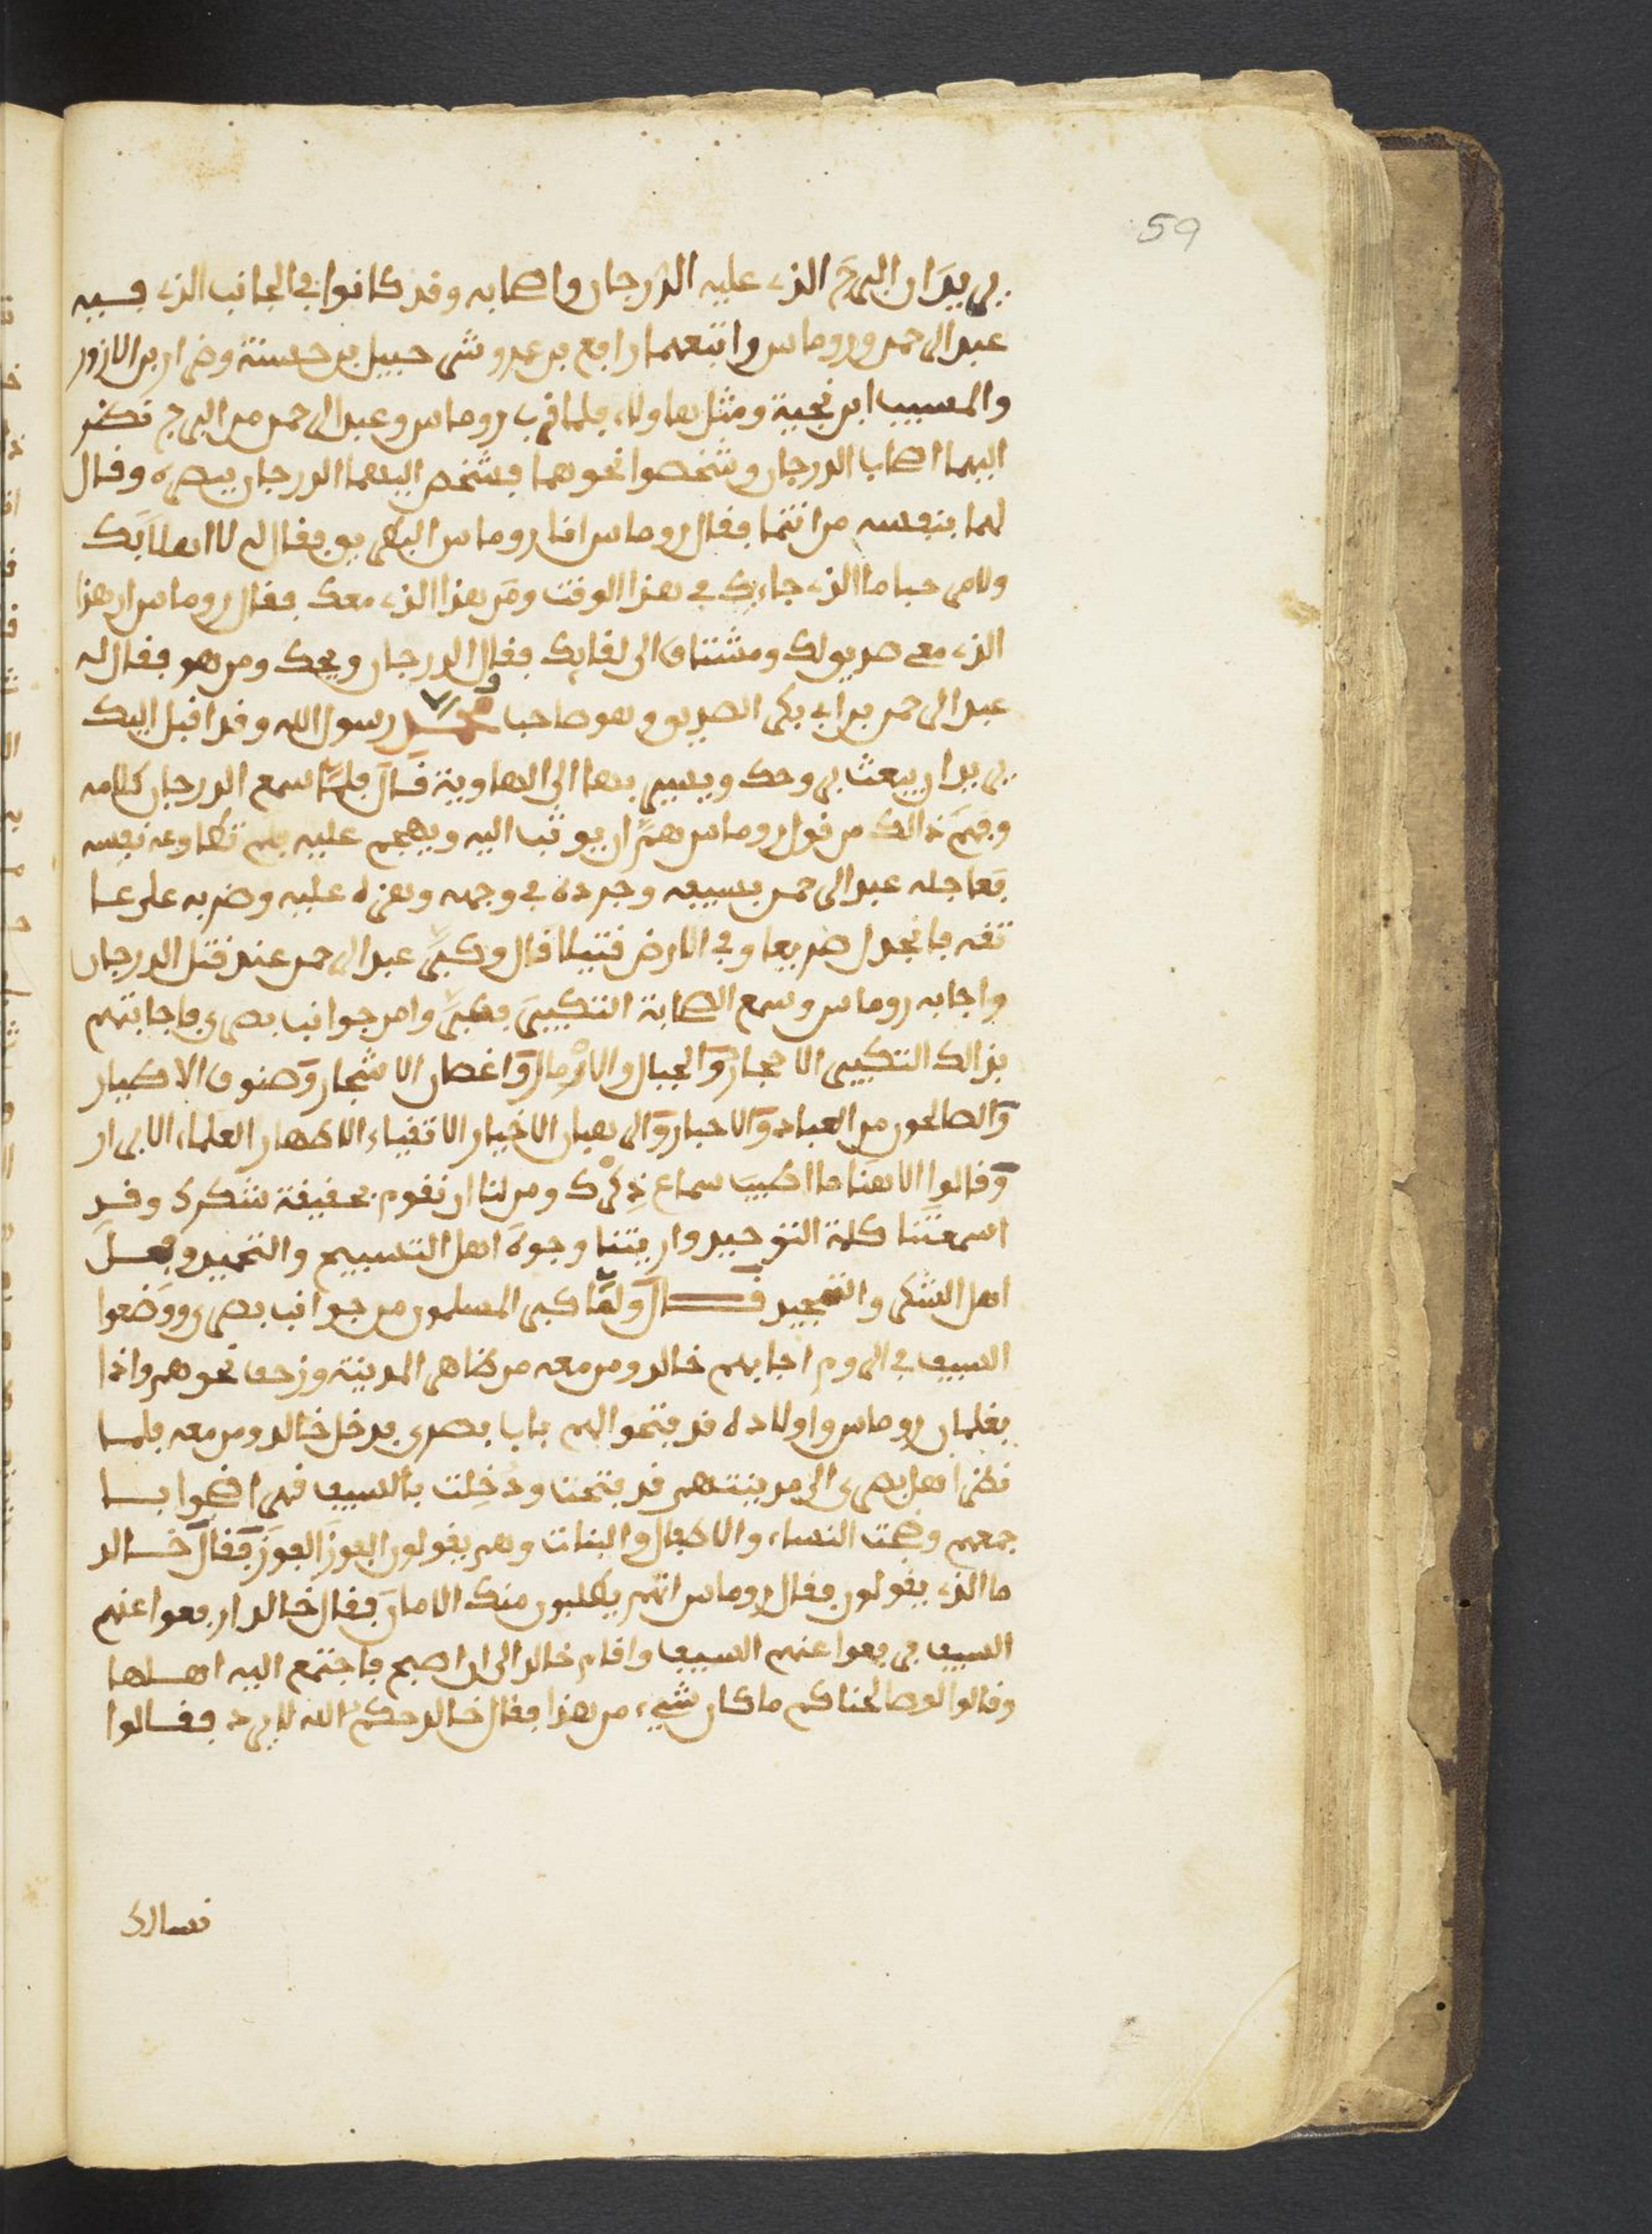 59
يريدان البرج الذي عليه الدرجان واصحابه وقد كانوا في الجانب الذي قسيه
عبد الرحمن وروماس واتبعهما رافع بن عمرو وشرحبيل بن حسنة وضرار بن الازور
والمسيب ابن نجيبة ومثل هاولاء فلما قرب روماس وعبد الرحمن من البرج نظر
اليهما اصحاب الدرجان وشخصوا نحوهما فشخص اليهما الدرجان ببصره وقال
لهما بنفسه من انتما فقال روماس انا روماس البطريق فقال له لا اهلا بك
ولا مرحبا ما الذي جاء بك في هذا الوقت ومن هذا الذي معك فقال روماس ان هذا
الذي معي صديق لك ومشتاق الى لقايك فقال الدرجان ويحك ومن هو فقال له
عبد الرحمن بن ابي بكر الصديق وهو صاحب محمد رسول الله وقد اقبل اليك
يريد ان يبعث بروحك ويسير بها الى الهاوية قال فلما سمع الدرجان كلامه
وفهم ذالك من قول روماس هم ان يوثب اليه ويهجم عليه فلم تطاوعه نفسه
فعاجله عبد الرحمن بسيفه وجرده في وجهه وهزه عليه وضربه على عا
تقه فانجدل صريعا وفي الارض قتيلا قال وكبر عبد الرحمن عند قتل الدرجان
واجابه روماس وسمع الصحابة التكبير فكبر وامن جوانب بصرى فاجابتهم
بذالك التكبير الاحجار والجبال والارمال واغصان الاشجار وصنوف الاطيار
والصالحون من العباد والاحبار والرهبان الاخيار الاتقياء الاطهار العلماء الابرار
وقالوا الاهنا ما اطيب سماع ذكرك ومن لنا ان نقوم بحقيقة شكرك وقد
اسمعتنا كلمة التوحيد واريتنا وجوه اهل التسبيح والتحميد وفعل
اهل الشكر والتمجيد قال ولما كبر المسلمون من جوانب بصرى ووضعوا
السيف في الروم اجابهم خالد ومن معه من ظاهر المدينة وزحف نحوهم واذا
بغلمان روماس واولاده قد فتحوا لهم باب بصرى فدخل خالد ومن معه فلما
نظر اهل بصرى الى مدينتهم قد فتحت ودخلت بالسيف فهرا ضجوا با
جمعهم وضجت النساء والاطفال والبنات وهم يقولون الغوز الغوز فقال خالد
ما الذي يقولون فقال روماس انهم يطلبون منك الامان فقال خالد ارفعوا عنهم
السيف فرفعوا عنهم السيف واقام خالد الى ان اصبح فاجتمع اليه اهلها
وقالوا لو صالحناكم ما كان شيء من هذا فقال خالد حكم الله لا يرد فقالوا
نسالك